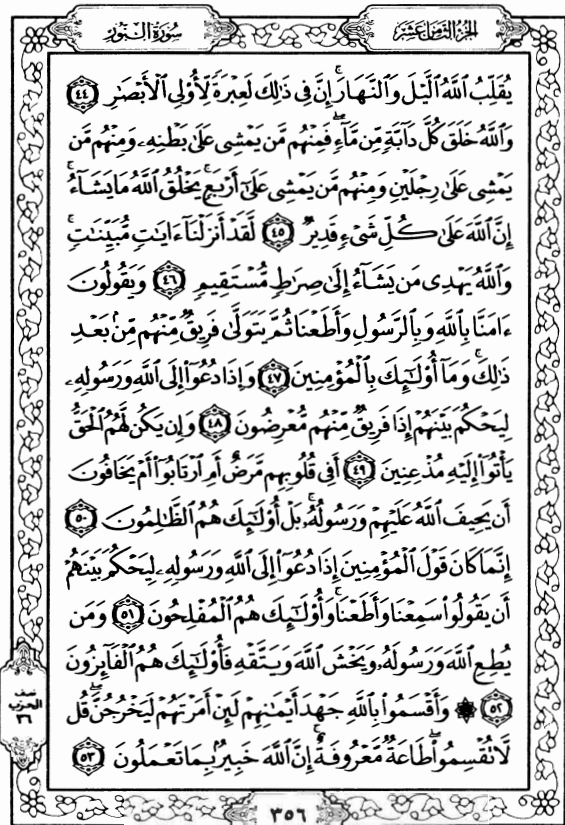 سُورَةُ النُّورِ
الجُزْءُ الثَّامِنَ عَشَرَ
يُقَلِّبُ اللَّهُ الَّيْلَ وَالنَّهَارَ ۚ إِنَّ فِى ذَٰلِكَ لَعِبْرَةً لِّأُوْلِى الْأَبْصَٰرِ ٤٤
وَاللَّهُ خَلَقَ كُلَّ دَآبَّةٍ مِّن مَّآءٍ ۖ فَمِنْهُم مَّن يَمْشِى عَلَىٰ بَطْنِهِۦ وَمِنْهُم مَّن
يَمْشِى عَلَىٰ رِجْلَيْنِ وَمِنْهُم مَّن يَمْشِى عَلَىٰٓ أَرْبَعٍ ۚ يَخْلُقُ اللَّهُ مَا يَشَآءُ ۚ
إِنَّ اللَّهَ عَلَىٰ كُلِّ شَىْءٍ قَدِيرٌ ٤٥ لَّقَدْ أَنزَلْنَآ ءَايَٰتٍ مُّبَيِّنَٰتٍ ۚ
وَاللَّهُ يَهْدِى مَن يَشَآءُ إِلَىٰ صِرَٰطٍ مُّسْتَقِيمٍ ٤٦ وَيَقُولُونَ
ءَامَنَّا بِاللَّهِ وَبِالرَّسُولِ وَأَطَعْنَا ثُمَّ يَتَوَلَّىٰ فَرِيقٌ مِّنْهُم مِّنۢ بَعْدِ
ذَٰلِكَ ۚ وَمَآ أُوْلَٰٓئِكَ بِالْمُؤْمِنِينَ ٤٧ وَإِذَا دُعُوٓا۟ إِلَى اللَّهِ وَرَسُولِهِۦ
لِيَحْكُمَ بَيْنَهُمْ إِذَا فَرِيقٌ مِّنْهُم مُّعْرِضُونَ ٤٨ وَإِن يَكُن لَّهُمُ الْحَقُّ
يَأْتُوٓا۟ إِلَيْهِ مُذْعِنِينَ ٤٩ أَفِى قُلُوبِهِم مَّرَضٌ أَمِ ارْتَابُوٓا۟ أَمْ يَخَافُونَ
أَن يَحِيفَ اللَّهُ عَلَيْهِمْ وَرَسُولُهُۥ ۚ بَلْ أُوْلَٰٓئِكَ هُمُ الظَّٰلِمُونَ ٥٠
إِنَّمَا كَانَ قَوْلَ الْمُؤْمِنِينَ إِذَا دُعُوٓا۟ إِلَى اللَّهِ وَرَسُولِهِۦ لِيَحْكُمَ بَيْنَهُمْ
أَن يَقُولُوا۟ سَمِعْنَا وَأَطَعْنَا ۚ وَأُوْلَٰٓئِكَ هُمُ الْمُفْلِحُونَ ٥١ وَمَن
يُطِعِ اللَّهَ وَرَسُولَهُۥ وَيَخْشَ اللَّهَ وَيَتَّقْهِ فَأُوْلَٰٓئِكَ هُمُ الْفَآئِزُونَ
٥٢ ۞ وَأَقْسَمُوا۟ بِاللَّهِ جَهْدَ أَيْمَٰنِهِمْ لَئِنْ أَمَرْتَهُمْ لَيَخْرُجُنَّ ۖ قُل
لَّا تُقْسِمُوا۟ ۖ طَاعَةٌ مَّعْرُوفَةٌ ۚ إِنَّ اللَّهَ خَبِيرٌۢ بِمَا تَعْمَلُونَ ٥٣
نصف
الحزب
٣٦
٣٥٦